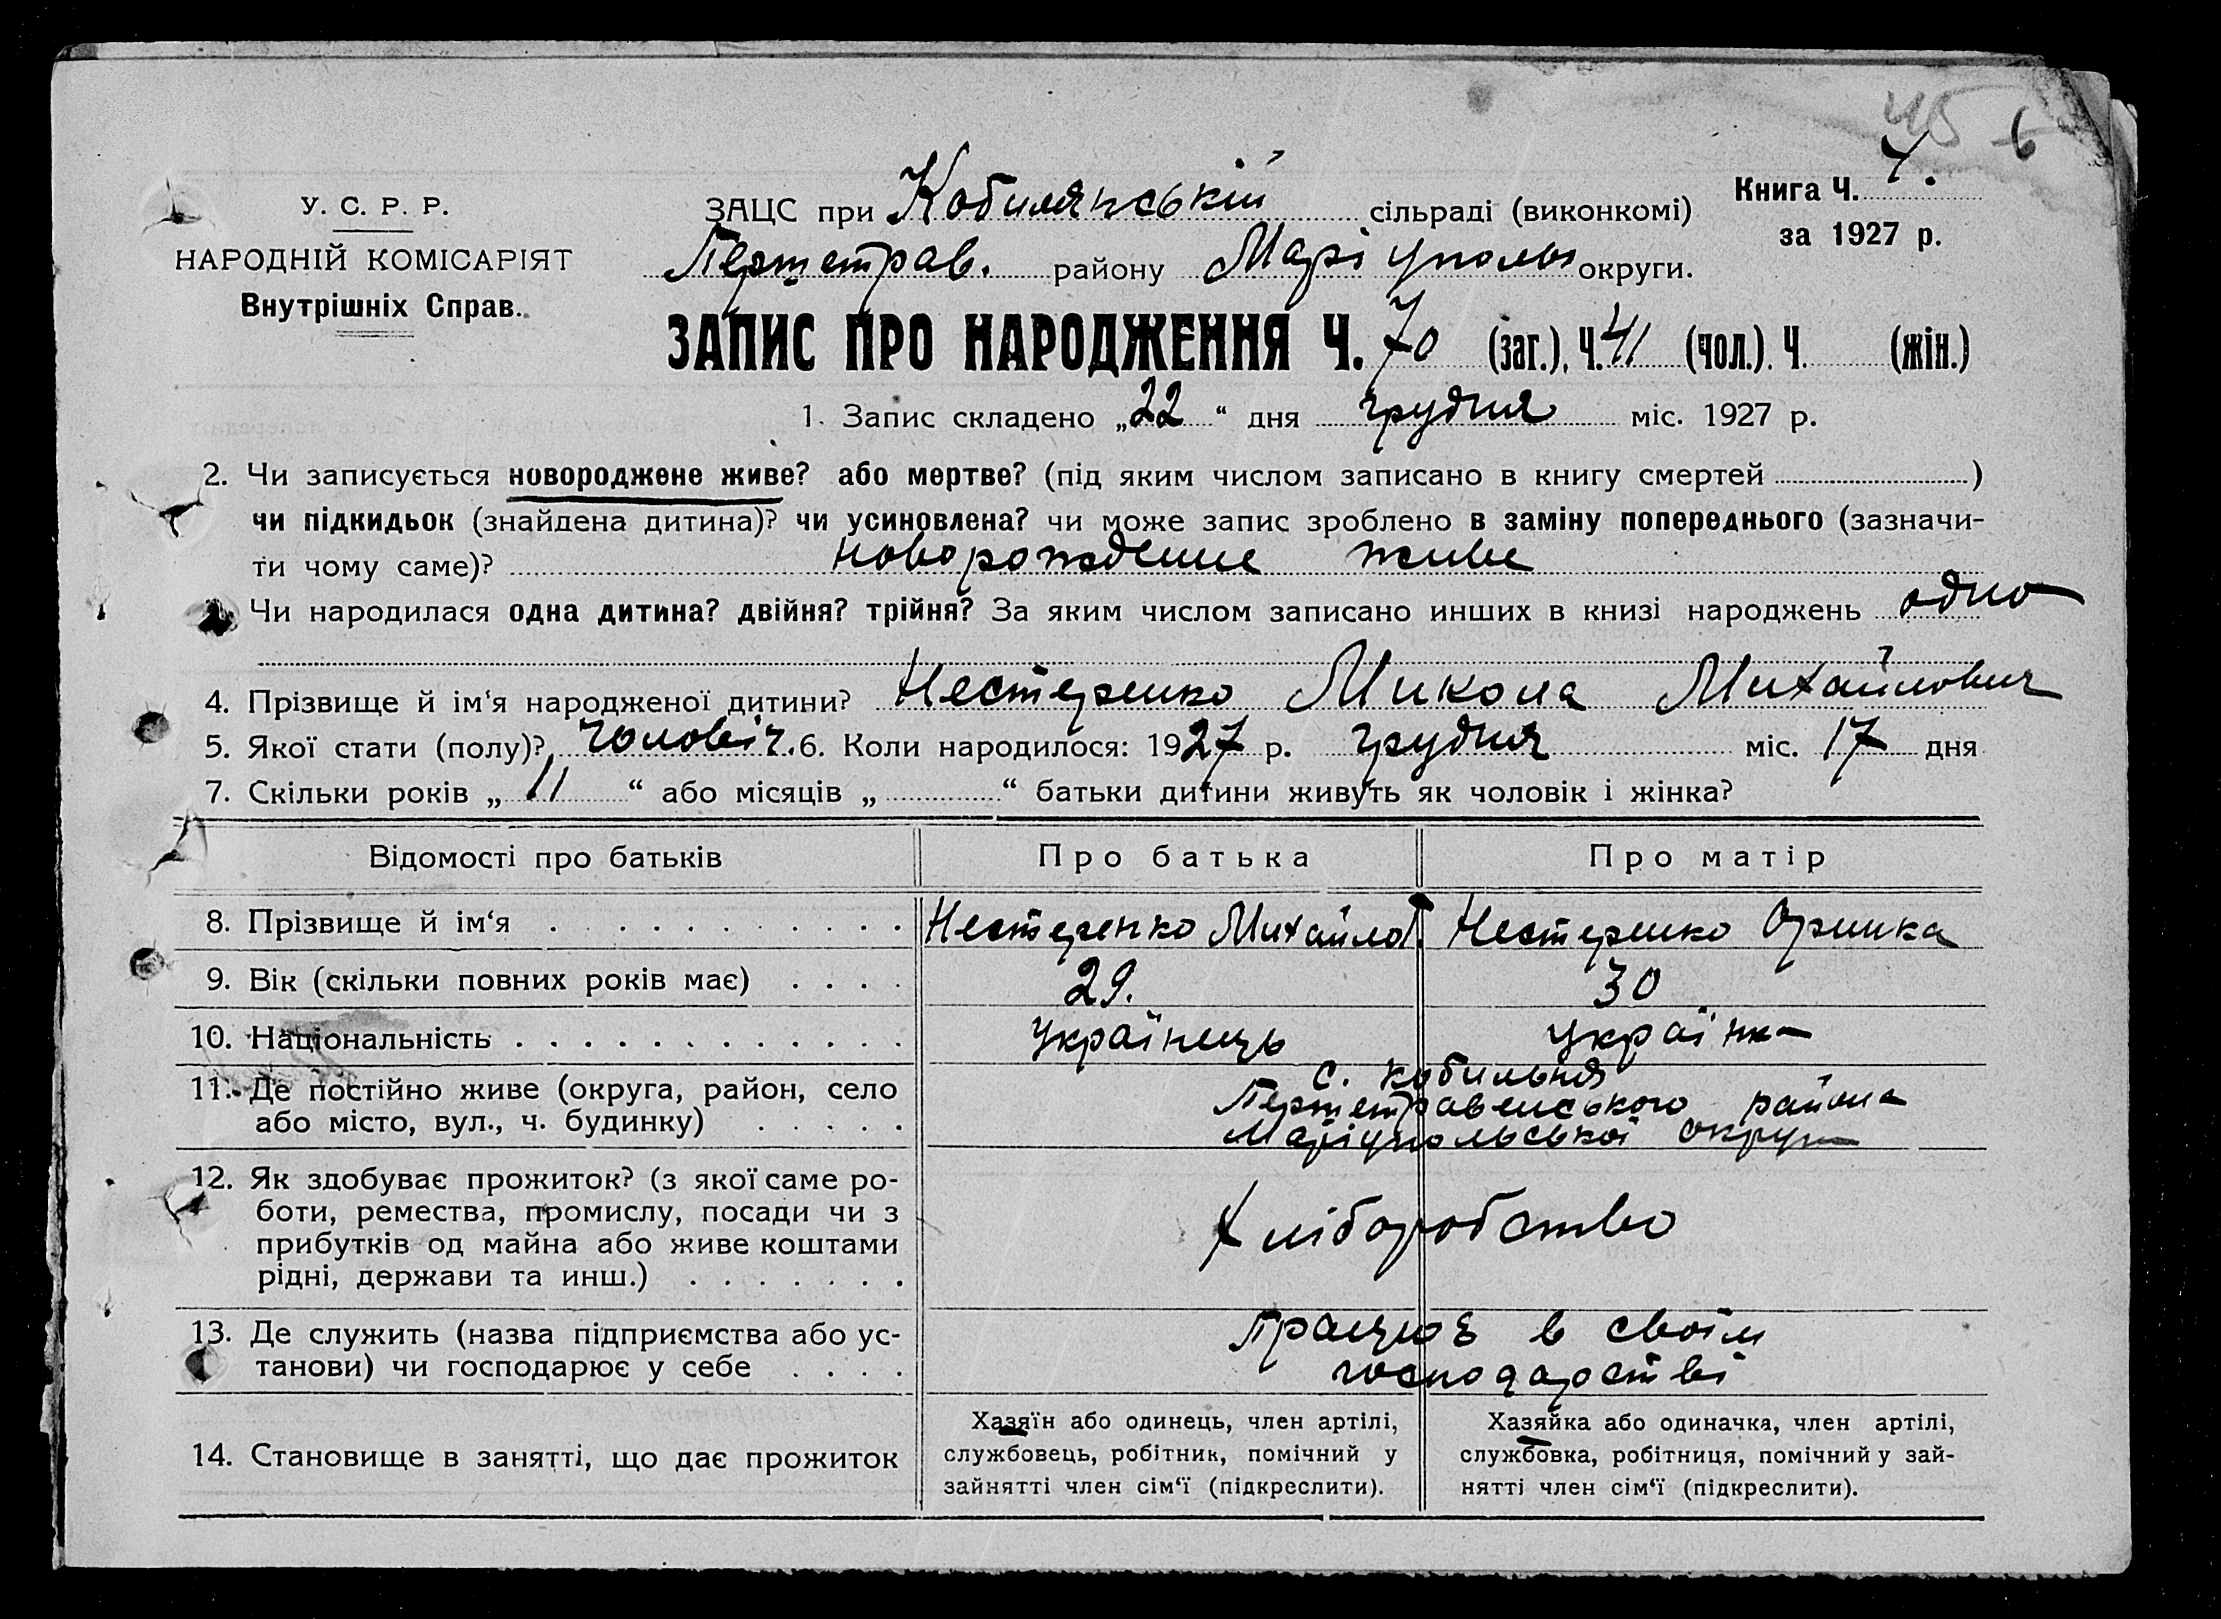 45 6
У. С. Р. Р.
НАРОДНІЙ КОМІСАРІЯТ
Внутрішніх Справ.
ЗАЦС при Кобилянській сільраді (виконкомі)
Книга Ч.
за 1927 р.
Першетрав. району Маріуполь округи.
ЗАПИС ПРО НАРОДЖЕННЯ Ч. 70 (заг.), Ч. 41 (чол.). Ч. (жін.)
1. Запис складено „22“ дня грудня міс. 1927 р.
2. Чи записується новороджене живе? або мертве? (під яким числом записано в книгу смертей )
чи підкидьок (знайдена дитина)? чи усиновлена? чи може запис зроблено в заміну попереднього (зазначи-
ти чому саме)? новорождене живе
Чи народилася одна дитина? двійня? трійня? За яким числом записано инших в книзі народжень одно
4. Прізвище й ім‘я народженої дитини? Нестеренко Микола Михайлович
5. Якої стати (полу)? чоловіч. 6. Коли народилося: 1927 р. грудня міс. 17 дня
7. Скільки років „ 11 “ або місяців „ “ батьки дитини живуть як чоловік і жінка?
Відомості про батьків Про батька Про матір
8. Прізвище й ім‘я Нестеренко Михайло Нестеренко Оринка
9. Вік (скільки повних років має) 29. 30
10. Національність українець українка
11. Де постійно живе (округа, район, село
або місто, вул., ч. будинку)
с. Кобильня
Першетравенського района
Маріупольської округи
12. Як здобуває прожиток? (з якої саме ро-
боти, ремества, промислу, посади чи з
прибутків од майна або живе коштами
рідні, держави та инш.)
Хліборобство
13. Де служить (назва підприємства або ус-
танови) чи господарює у себе
Працює в своїм
господарстві
14. Становище в занятті, що дає прожиток
Хазяїн або одинець, член артілі,
службовець, робітник, помічний у
зайнятті член сім‘ї (підкреслити).
Хазяйка або одиначка, член артілі,
службовка, робітниця, помічний у зай-
нятті член сім‘ї (підкреслити).